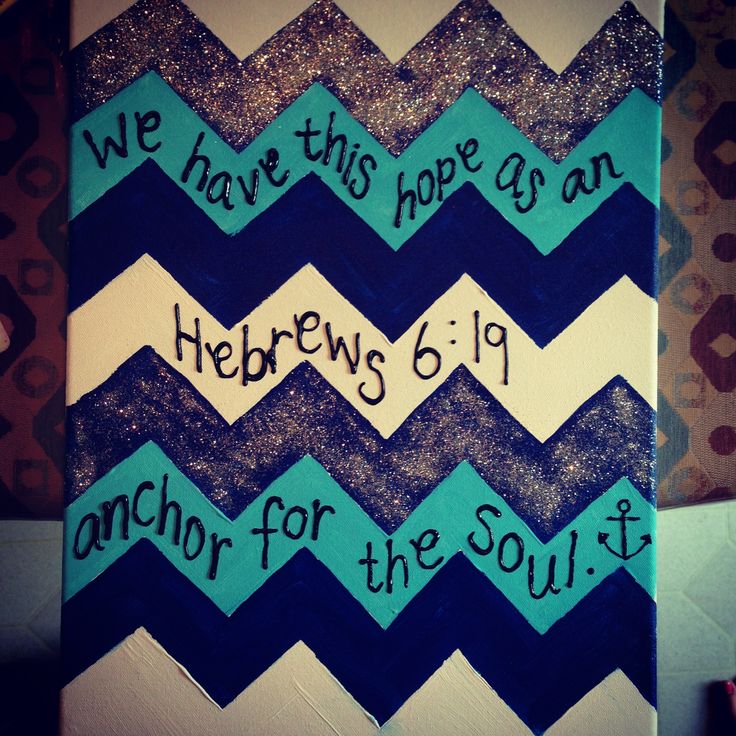 We have this hope as an
Hebrews 6:19
anchor for the soul.